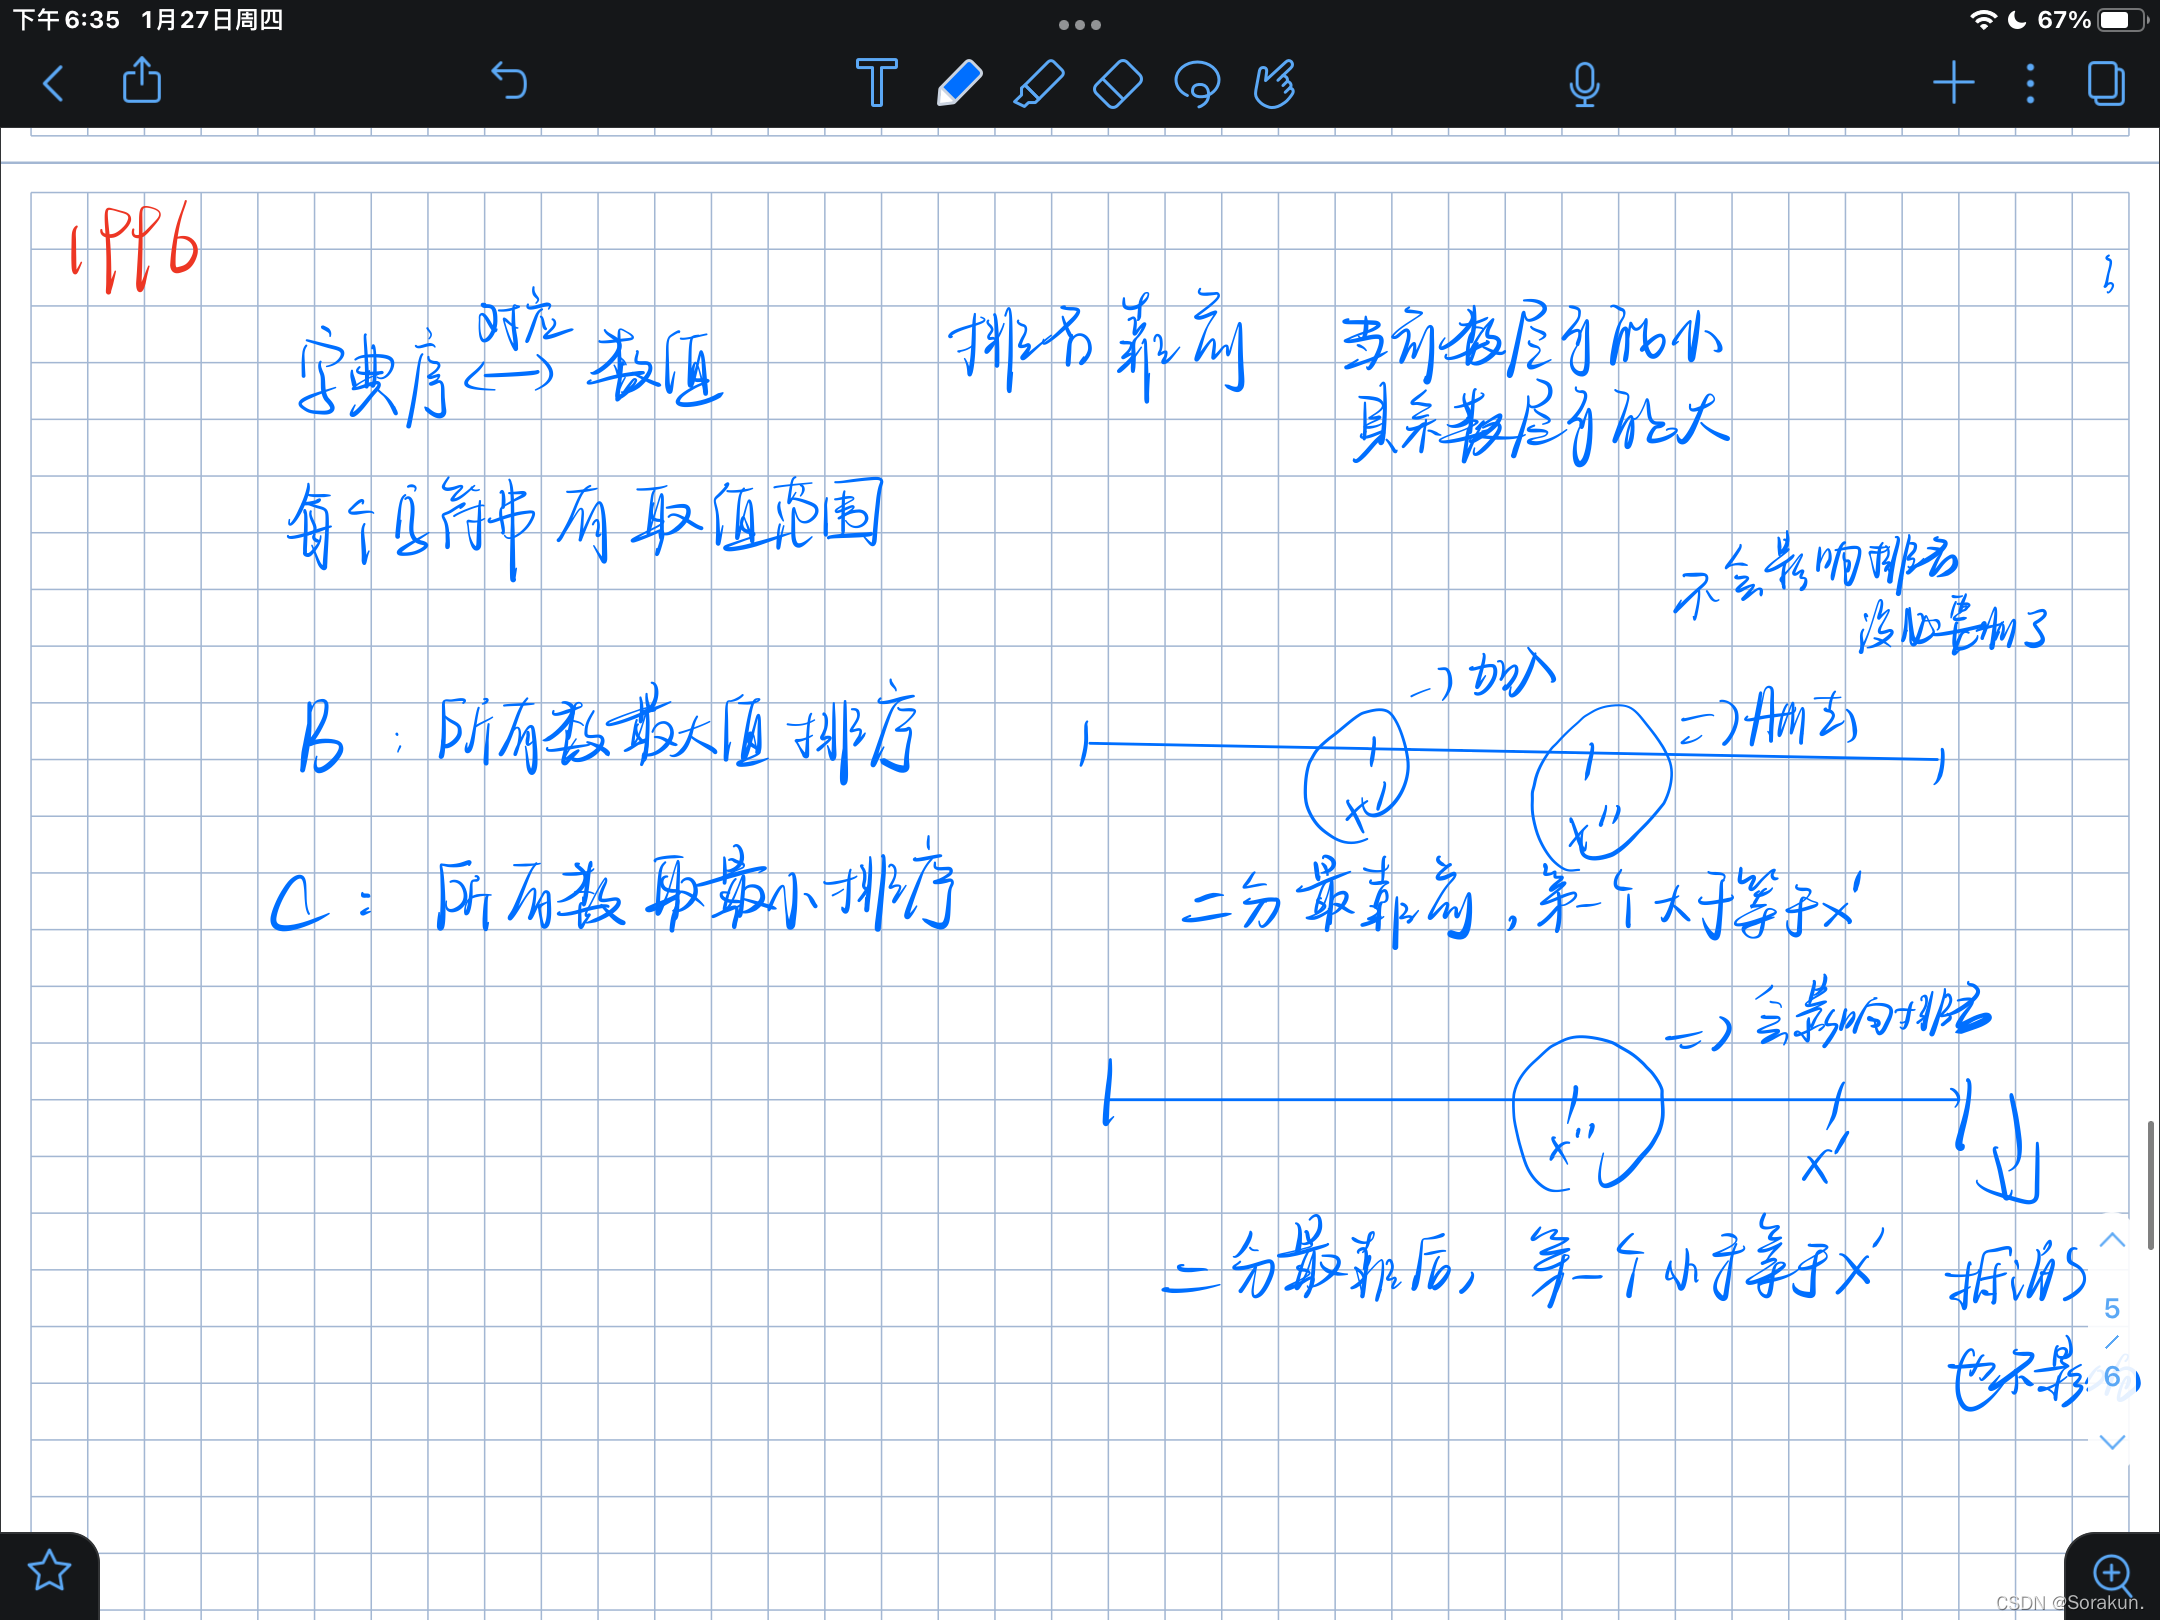 下午6:35 1月27日周四
67%
1996
对应
字典序 <—> 数值
排名靠前
当前数尽可能小
其余数尽可能大
每个字符串有取值范围
不会影响排名
没必要删了
=> 加入
B : 所有数最大值排序
=> 删去
x'
x''
C : 所有数取最小排序
二分最靠前, 第一个大于等于x'
=> 会影响排名
x''
x'
二分最靠后, 第一个小于等于x'
也不影
5
/
6
CSDN @Sorakun.